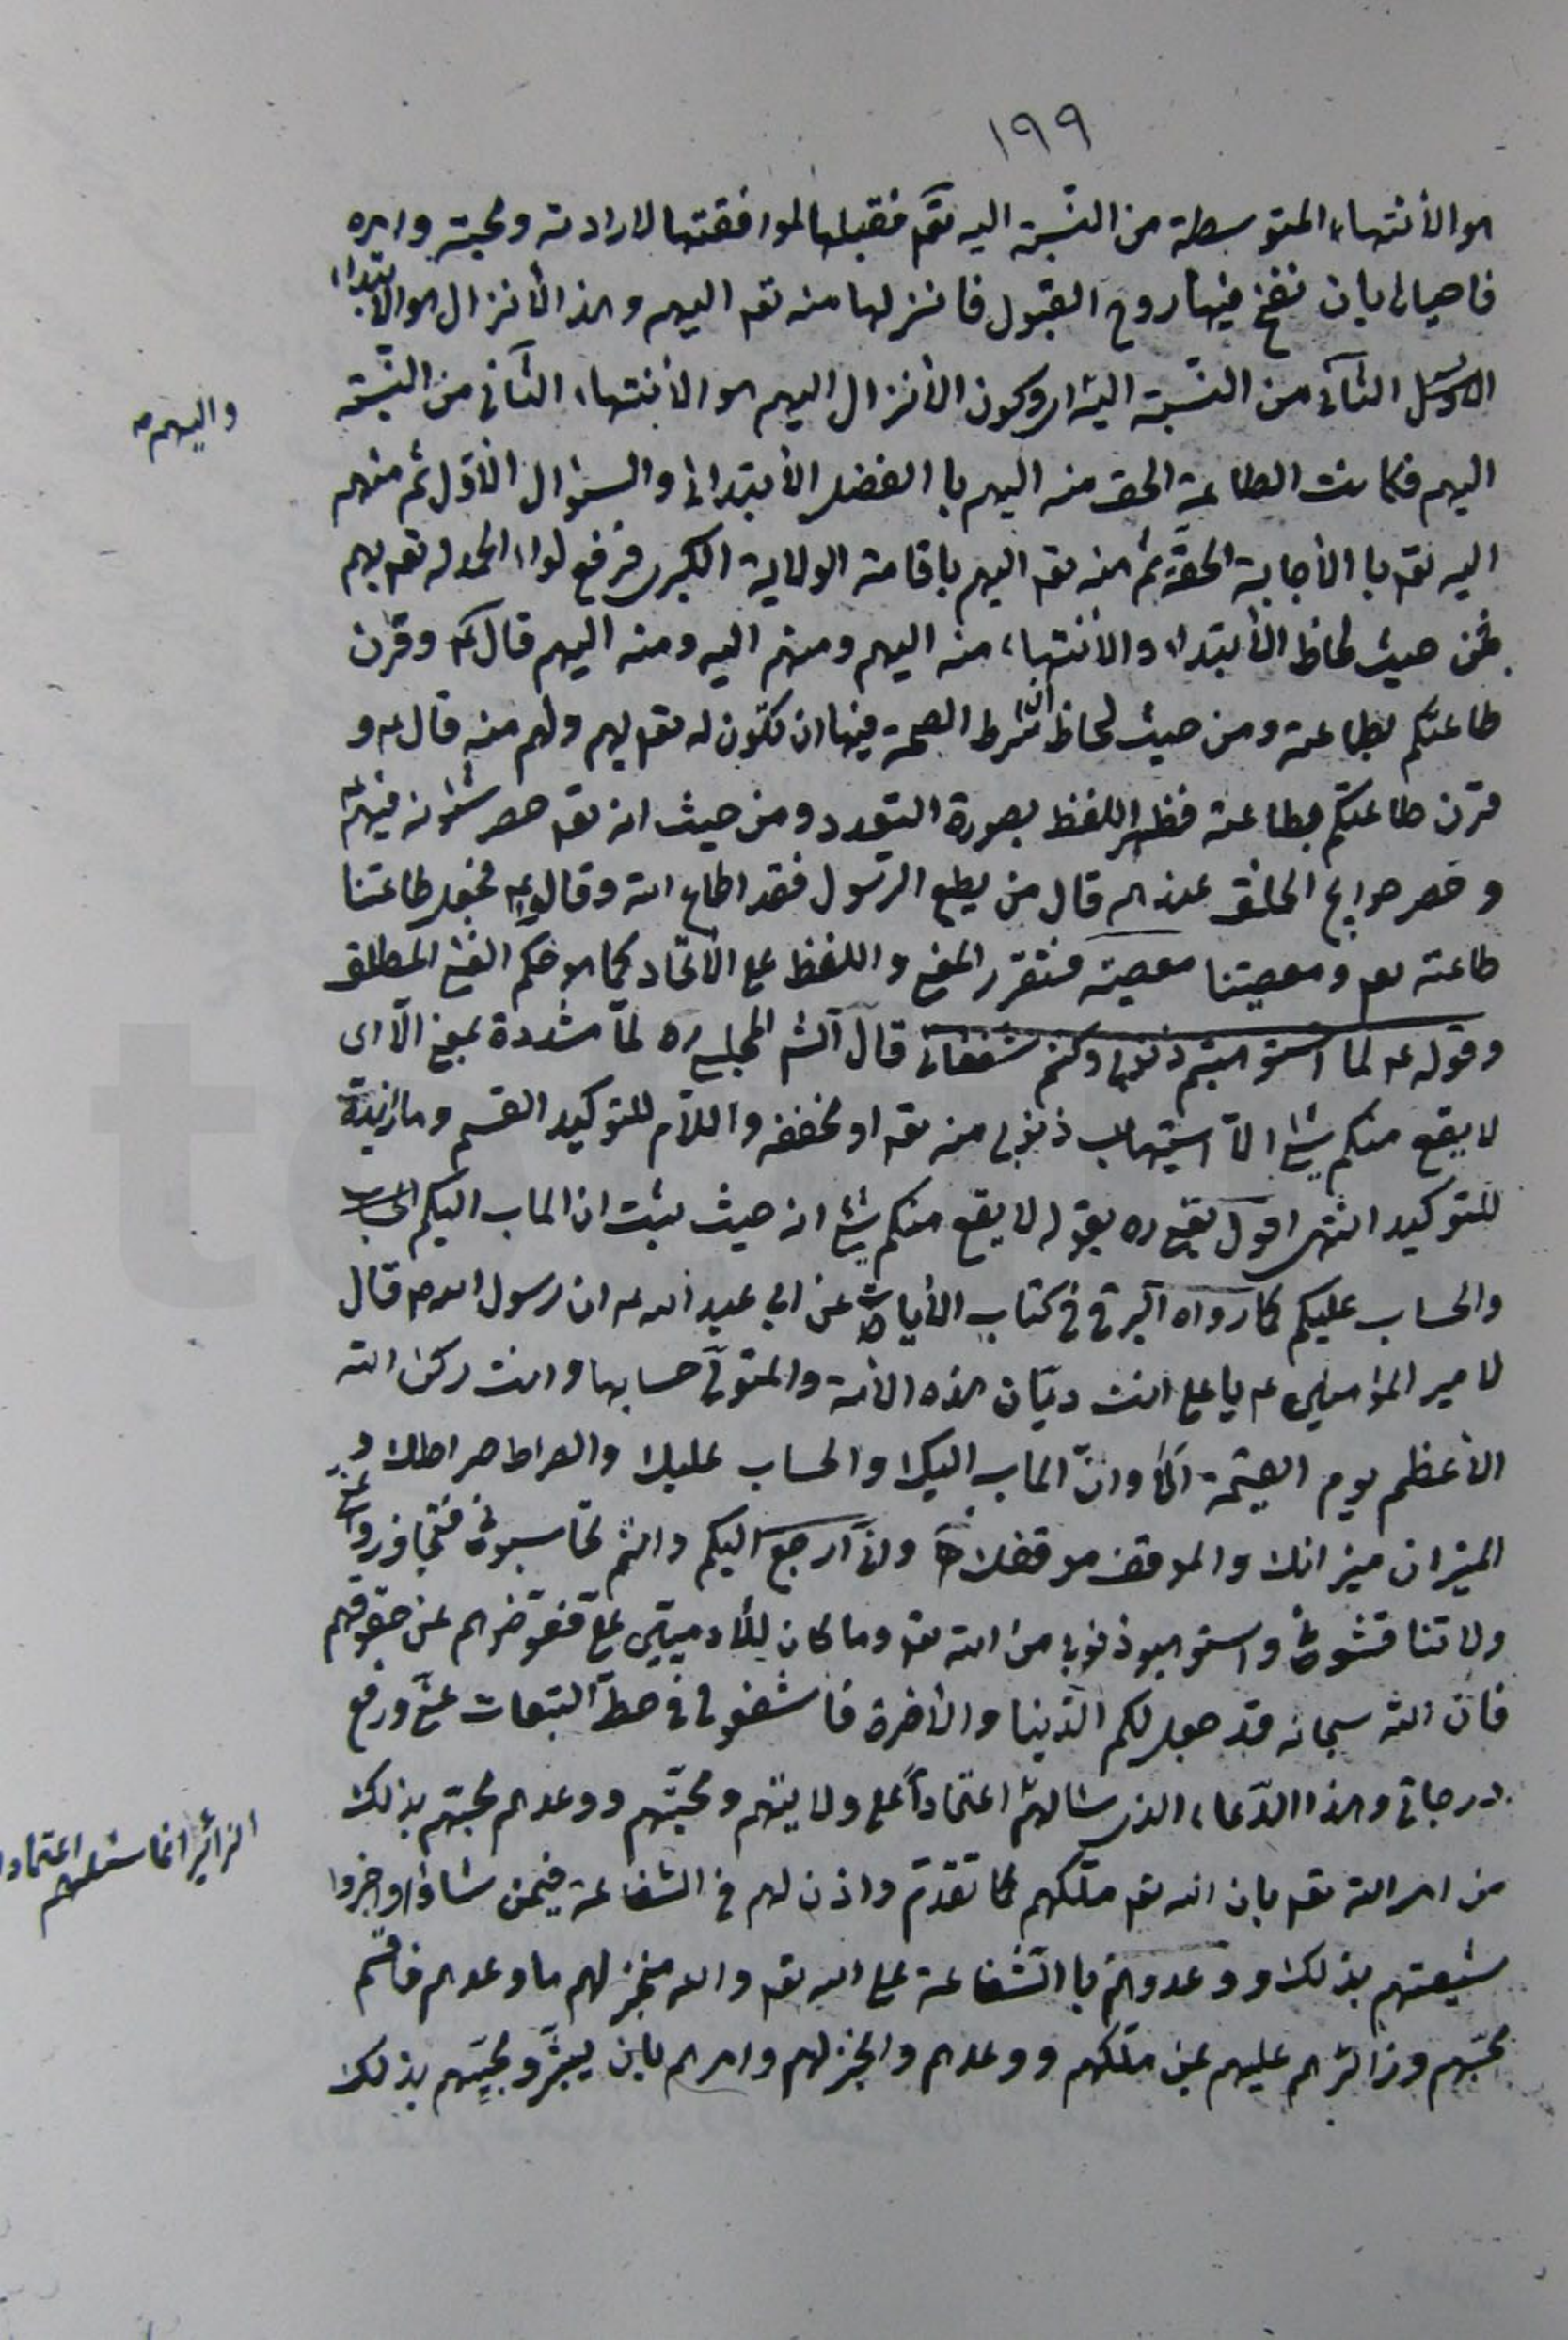 ١٩٩
هو الأنتهاء المتوسطة من النسبة اليه تقم فقبلها لموافقتها لارادته ومحبته وامره
فاحياها بان نفخ فيها روح القبول فانزلها منه تقه اليهم وهذا الأنزال هو الابتداء
الثانى من النسبة اليه وكون الأنزال اليهم هو الأنتهاء الثانى من النسبة
واليهم
اليهم فكانت الطاعة الحق منه اليهم با الفضل الأبتدائى والسئوال الأول ثم منهم
اليه تقه با الأجابة الحقة ثم منه تقه اليهم باقامة الولاية الكبرى فرفع لواء الحمد له تقه بهم
فمن حيث لحاظ الأبتداء والأنتهاء منه اليهم ومنهم اليه ومنه اليهم قال وقرن
طاعتكم بطاعته ومن حيث لحاظ ان شرط الصحة فيها ان تكون له تقه بهم ولهم منه قال عه و
قرن طاعتكم بطاعته فظهر اللفظ بصورة التعدد ومن حيث انه تقه حصر شئونه فيهم
وحصر حوايج الخلق عندهم قال من يطع الرسول فقد اطاع الله وقال عه فجعل طاعتنا
طاعته تعه ومعصيتنا معصيته فتقرر المعنى واللفظ على الأتحاد كما هو حكم الغنى المطلق
وقوله عه لما استوهبتم ذنوبى وكنتم شفعائى قال الش المجلسى ره لما مشددة بمعنى الا اى
لا يقع منكم شئ الا استيهاب ذنوبى منه تقه او مخففه واللام للتوكيد القسم وما زايدة
للتوكيد انتهى اقول يعنى ره بقوله لا يقع منكم شئ انه حيث ثبت ان الماب اليكم
والحساب عليكم كما رواه البرقى فى كتاب الأيات عن ابى عبد الله عه ان رسول الله ص قال
لامير المؤمنين عه يا على انت ديان هذه الأمة والمتولى حسابها وانت ركن الله
الأعظم يوم القيمة الا وان الماب اليك والحساب عليك والصراط صراطك و
الميزان ميزانك والموقف موقفك ولان ارجع اليكم وانتم تحاسبونى فتجاوزوا عنى
ولا تناقشونى واستوهبوا ذنوبى من الله تقه وما كان للأدميين على فعوضوهم عن حقوقهم
فان الله سبحانه قد جعل لكم الدنيا والأخرة فاشفعوا لى فى حط التبعات عنى ورفع
درجاتى وهذا الدعاء الذى سئالهم اعتمادا على ولايتهم ومحبتهم ووعدهم محبتهم بذلك
الزائر انما سئلهم اعتمادا
من امر الله تقه بان الله تقه ملكهم كما تقدم واذن لهم فى الشفاعة فيمن شاؤا واخبروا
شيعتهم بذلك ووعدوهم با الشفاعة على الله تقه والله منجز لهم ما وعدهم فاقسم
محبهم وزائرهم عليهم بمن ملكهم ووعدهم وانجز لهم وامرهم بان يبشروا محبيهم بذلك